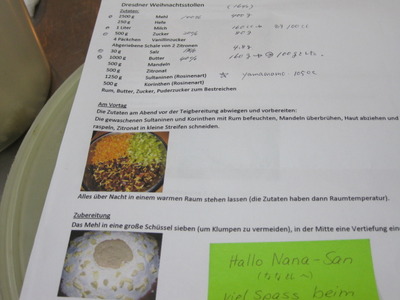 Dresdner Weihnachtsstollen
Zutaten:
2500 g Mehl 100%
250 g Hefe
1 Liter Milch
500 g Zucker 20%
4 Päckchen Vanillinzucker
Abgeriebene Schale von 2 Zitronen
30 g Salz
1000 g Butter
500 g Mandeln
500 g Zitronat
1250 g Sultaninen (Rosinenart)
500 g Korinthen (Rosinenart)
Rum, Butter, Zucker, Puderzucker zum Bestreichen
Am Vortag
Die Zutaten am Abend vor der Teigbereitung abwiegen und vorbereiten:
Die gewaschenen Sultaninen und Korinthen mit Rum befeuchten, Mandeln überbrühen, Haut abziehen und
raspeln, Zitronat in kleine Streifen schneiden.
Alles über Nacht in einem warmen Raum stehen lassen (die Zutaten haben dann Raumtemperatur).
Zubereitung
Das Mehl in eine große Schüssel sieben (um Klumpen zu vermeiden), in der Mitte eine Vertiefung
Hallo Nana-San
viel Spass beim